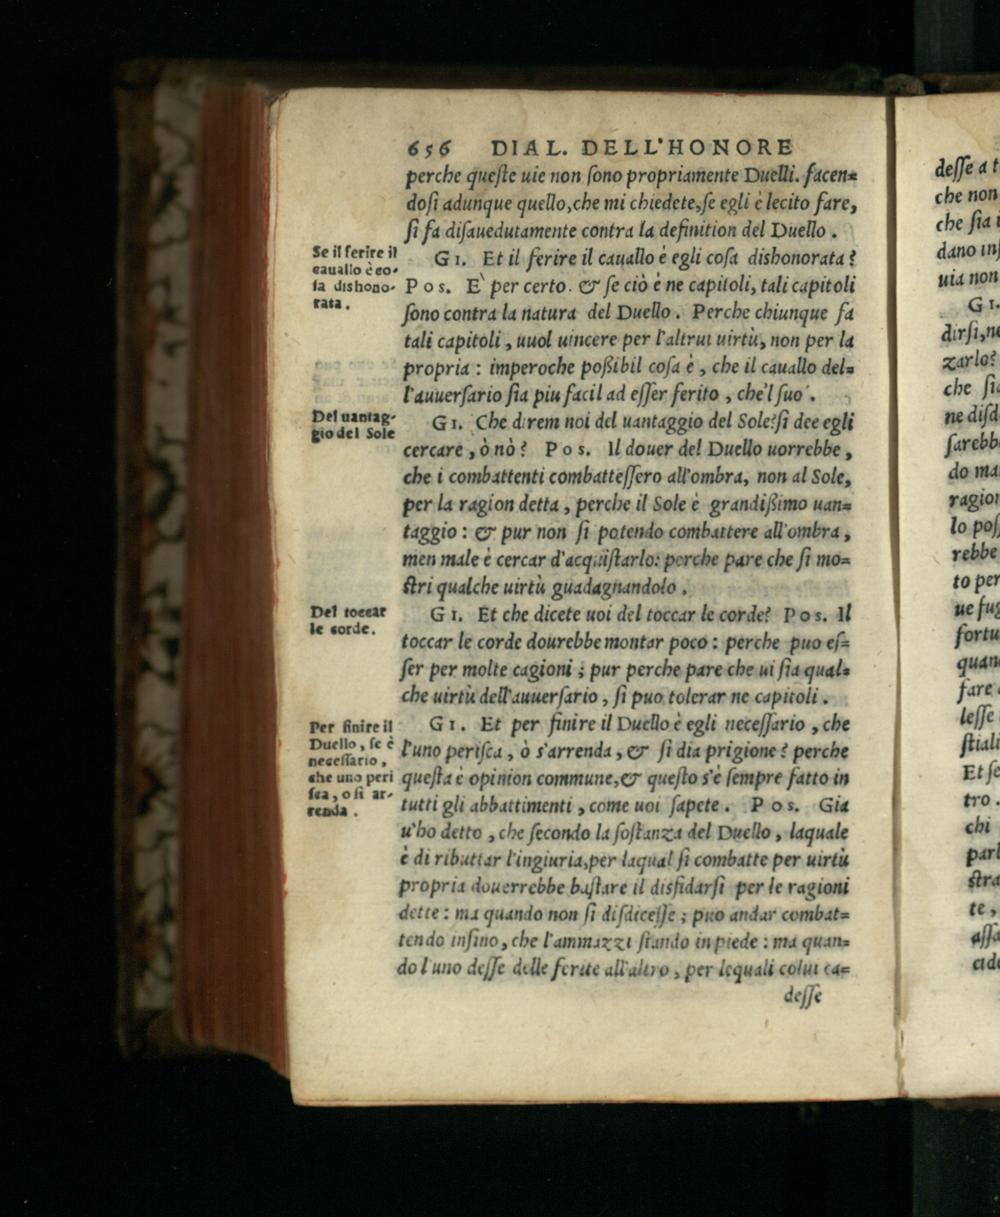 656 DIAL. DELL'HONORE
perche queſte uie non ſono propriamente Duelli. facen=
doſi adunque quello, che mi chiedete, ſe egli è lecito fare,
ſi fa diſauedutamente contra la definition del Duello.
Se il ferire il
cauallo è co-
ſa dishono-
rata.
GI. Et il ferire il cauallo è egli coſa dishonorata?
Pos. E` per certo. & ſe ciò è ne capitoli, tali capitoli
ſono contra la natura del Duello. Perche chiunque fa
tali capitoli, uuol uincere per l'altrui uirtù, non per la
propria: imperoche poßibil coſa è, che il cauallo del=
l'auuerſario ſia piu facil ad eſſer ferito, che'l ſuo.
Del uantag-
gio del Sole
GI. Che direm noi del uantaggio del Sole? ſi dee egli
cercare, ò nò? Pos. Il douer del Duello uorrebbe,
che i combattenti combatteſſero all'ombra, non al Sole,
per la ragion detta, perche il Sole è grandißimo uan=
taggio: & pur non ſi potendo combattere all'ombra,
men male è cercar d'acquiſtarlo: perche pare che ſi mo=
ſtri qualche uirtù guadagnandolo.
Del toccar
le corde.
GI. Et che dicete uoi del toccar le corde? Pos. Il
toccar le corde dourebbe montar poco: perche puo eſ=
ſer per molte cagioni; pur perche pare che ui ſia qual=
che uirtù dell'auuerſario, ſi puo tolerar ne capitoli.
Per finire il
Duello, ſe è
neceſſario,
che uno peri
ſca, o ſi ar-
renda.
GI. Et per finire il Duello è egli neceſſario, che
l'uno periſca, ò s'arrenda, & ſi dia prigione? perche
queſta è opinion commune, & queſto s'è ſempre fatto in
tutti gli abbattimenti, come uoi ſapete. Pos. Gia
u'ho detto, che ſecondo la ſoſtanza del Duello, laquale
è di ributtar l'ingiuria, per laqual ſi combatte per uirtù
propria douerrebbe baſtare il disfidarſi per le ragioni
dette: ma quando non ſi diſdiceſſe; puo andar combat=
tendo inſino, che l'ammazzi ſtando in piede: ma quan=
do l'uno deſſe delle ferite all'altro, per lequali colui ca=
deſſe
deſſe a t
che non
che ſia
dano
uia non
GI.
dirſi,
zarlo?
che
ne
ſarebb
do ma
ragion
lo poſ
rebbe
to per
ue fug
fortu
quan
fare
leſſe
ſtiali
Et ſe
tro.
chi
parl
ſtra
te,
aſſa